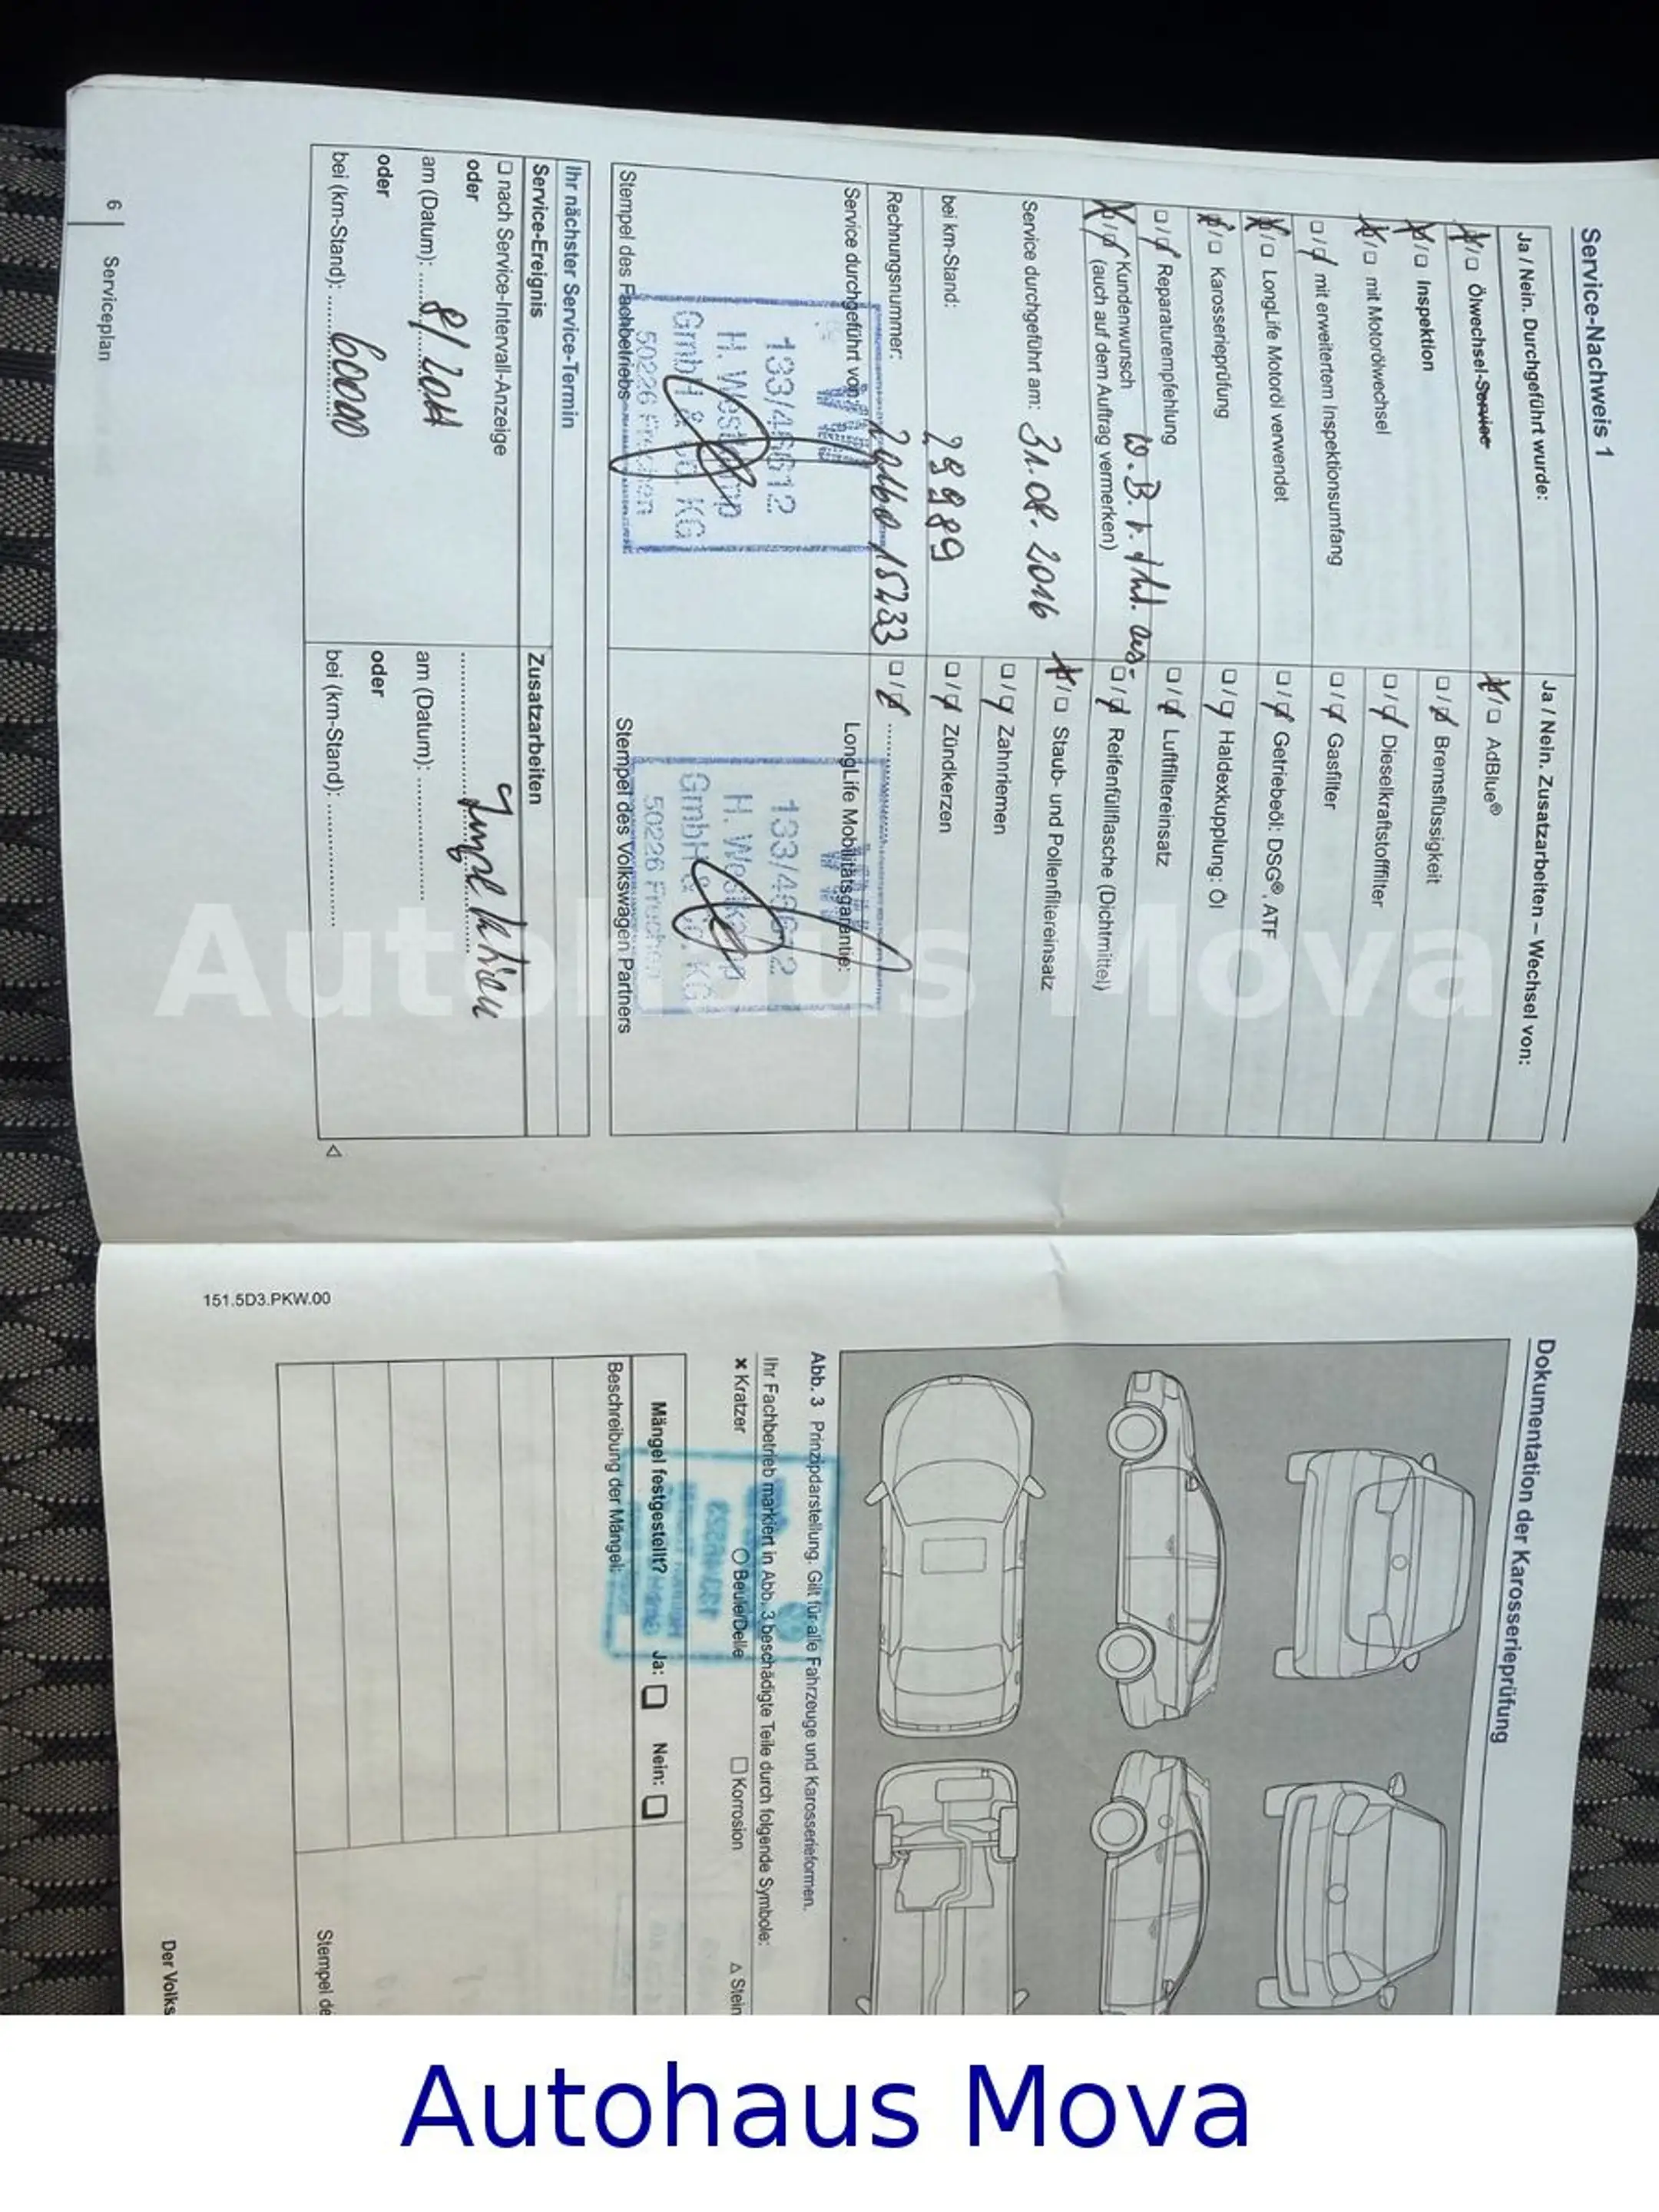 Service-Nachweis 1
Ja / Nein. Durchgeführt wurde:
Ölwechsel-Service
Inspektion
mit Motorölwechsel
mit erweitertem Inspektionsumfang
LongLife Motoröl verwendet
Karosserieprüfung
Reparaturempfehlung
Kundenwunsch
(auch auf dem Auftrag vermerken)
Service durchgeführt am: 31.08.2016
bei km-Stand: 29989
Rechnungsnummer:
Service durchgeführt von:
133/45612
H. Westkamp
GmbH & Co. KG
50226 Frechen
Stempel des Fachbetriebs
Ja / Nein. Zusatzarbeiten – Wechsel von:
AdBlue®
Bremsflüssigkeit
Dieselkraftstofffilter
Gasfilter
Getriebeöl: DSG®, ATF
Haldexkupplung: Öl
Luftfiltereinsatz
Reifenfüllflasche (Dichtmittel)
Staub- und Pollenfiltereinsatz
Zahnriemen
Zündkerzen
LongLife Mobilitätsgarantie:
H. Westkamp
GmbH & Co. KG
50226 Frechen
Stempel des Volkswagen Partners
Ihr nächster Service-Termin
Service-Ereignis
nach Service-Intervall-Anzeige
oder
am (Datum):
oder
bei (km-Stand): 60000
Zusatzarbeiten
am (Datum):
oder
bei (km-Stand):
6 Serviceplan
Dokumentation der Karosserieprüfung
Abb. 3 Prinzipdarstellung. Gilt für alle Fahrzeuge und Karosserieformen.
Ihr Fachbetrieb markiert in Abb. 3 beschädigte Teile durch folgende Symbole:
× Kratzer ○ Beule/Delle □ Korrosion △ Stein
Mängel festgestellt? Ja: Nein:
Beschreibung der Mängel:
Stempel de
Der Volks
151.5D3.PKW.00
Autohaus Mova
Autohaus Mova